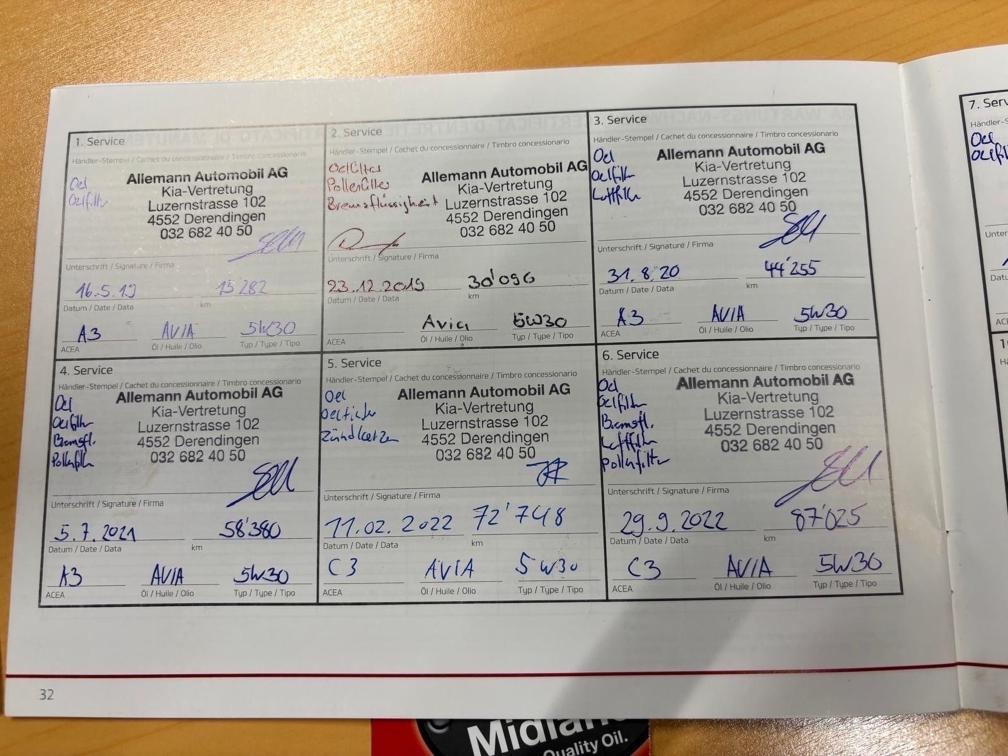 1. Service
Händler-Stempel / Cachet du concessionnaire / Timbro concessionario
Oel
Oelfilter
Allemann Automobil AG
Kia-Vertretung
Luzernstrasse 102
4552 Derendingen
032 682 40 50
Unterschrift / Signature / Firma
16.5.19 15'282
Datum / Date / Data km
A3 AVIA 5W30
ACEA Öl / Huile / Olio Typ / Type / Tipo
2. Service
Händler-Stempel / Cachet du concessionnaire / Timbro concessionario
Oelfilter
Pollenfilter
Bremsflüssigkeit
Allemann Automobil AG
Kia-Vertretung
Luzernstrasse 102
4552 Derendingen
032 682 40 50
Unterschrift / Signature / Firma
23.12.2019 30'096
Datum / Date / Data km
Avia 5W30
ACEA Öl / Huile / Olio Typ / Type / Tipo
3. Service
Händler-Stempel / Cachet du concessionnaire / Timbro concessionario
Oel
Oelfilter
Luftfilter
Allemann Automobil AG
Kia-Vertretung
Luzernstrasse 102
4552 Derendingen
032 682 40 50
Unterschrift / Signature / Firma
31.8.20 44'255
Datum / Date / Data km
A3 AVIA 5W30
ACEA Öl / Huile / Olio Typ / Type / Tipo
4. Service
Händler-Stempel / Cachet du concessionnaire / Timbro concessionario
Oel
Oelfilter
Bremsfl.
Pollenfilter
Allemann Automobil AG
Kia-Vertretung
Luzernstrasse 102
4552 Derendingen
032 682 40 50
Unterschrift / Signature / Firma
5.7.2021 58'380
Datum / Date / Data km
A3 AVIA 5W30
ACEA Öl / Huile / Olio Typ / Type / Tipo
5. Service
Händler-Stempel / Cachet du concessionnaire / Timbro concessionario
Oel
Oelfilter
Zündkerzen
Allemann Automobil AG
Kia-Vertretung
Luzernstrasse 102
4552 Derendingen
032 682 40 50
Unterschrift / Signature / Firma
11.02.2022 72'748
Datum / Date / Data km
C3 AVIA 5W30
ACEA Öl / Huile / Olio Typ / Type / Tipo
6. Service
Händler-Stempel / Cachet du concessionnaire / Timbro concessionario
Oel
Oelfilter
Bremsfl.
Luftfilter
Pollenfilter
Allemann Automobil AG
Kia-Vertretung
Luzernstrasse 102
4552 Derendingen
032 682 40 50
Unterschrift / Signature / Firma
29.9.2022 87'025
Datum / Date / Data km
C3 AVIA 5W30
ACEA Öl / Huile / Olio Typ / Type / Tipo
32
7. Serv
Händler-
Oel
Oelfil
Unter
Datu
ACE
Midlan
Quality Oil.